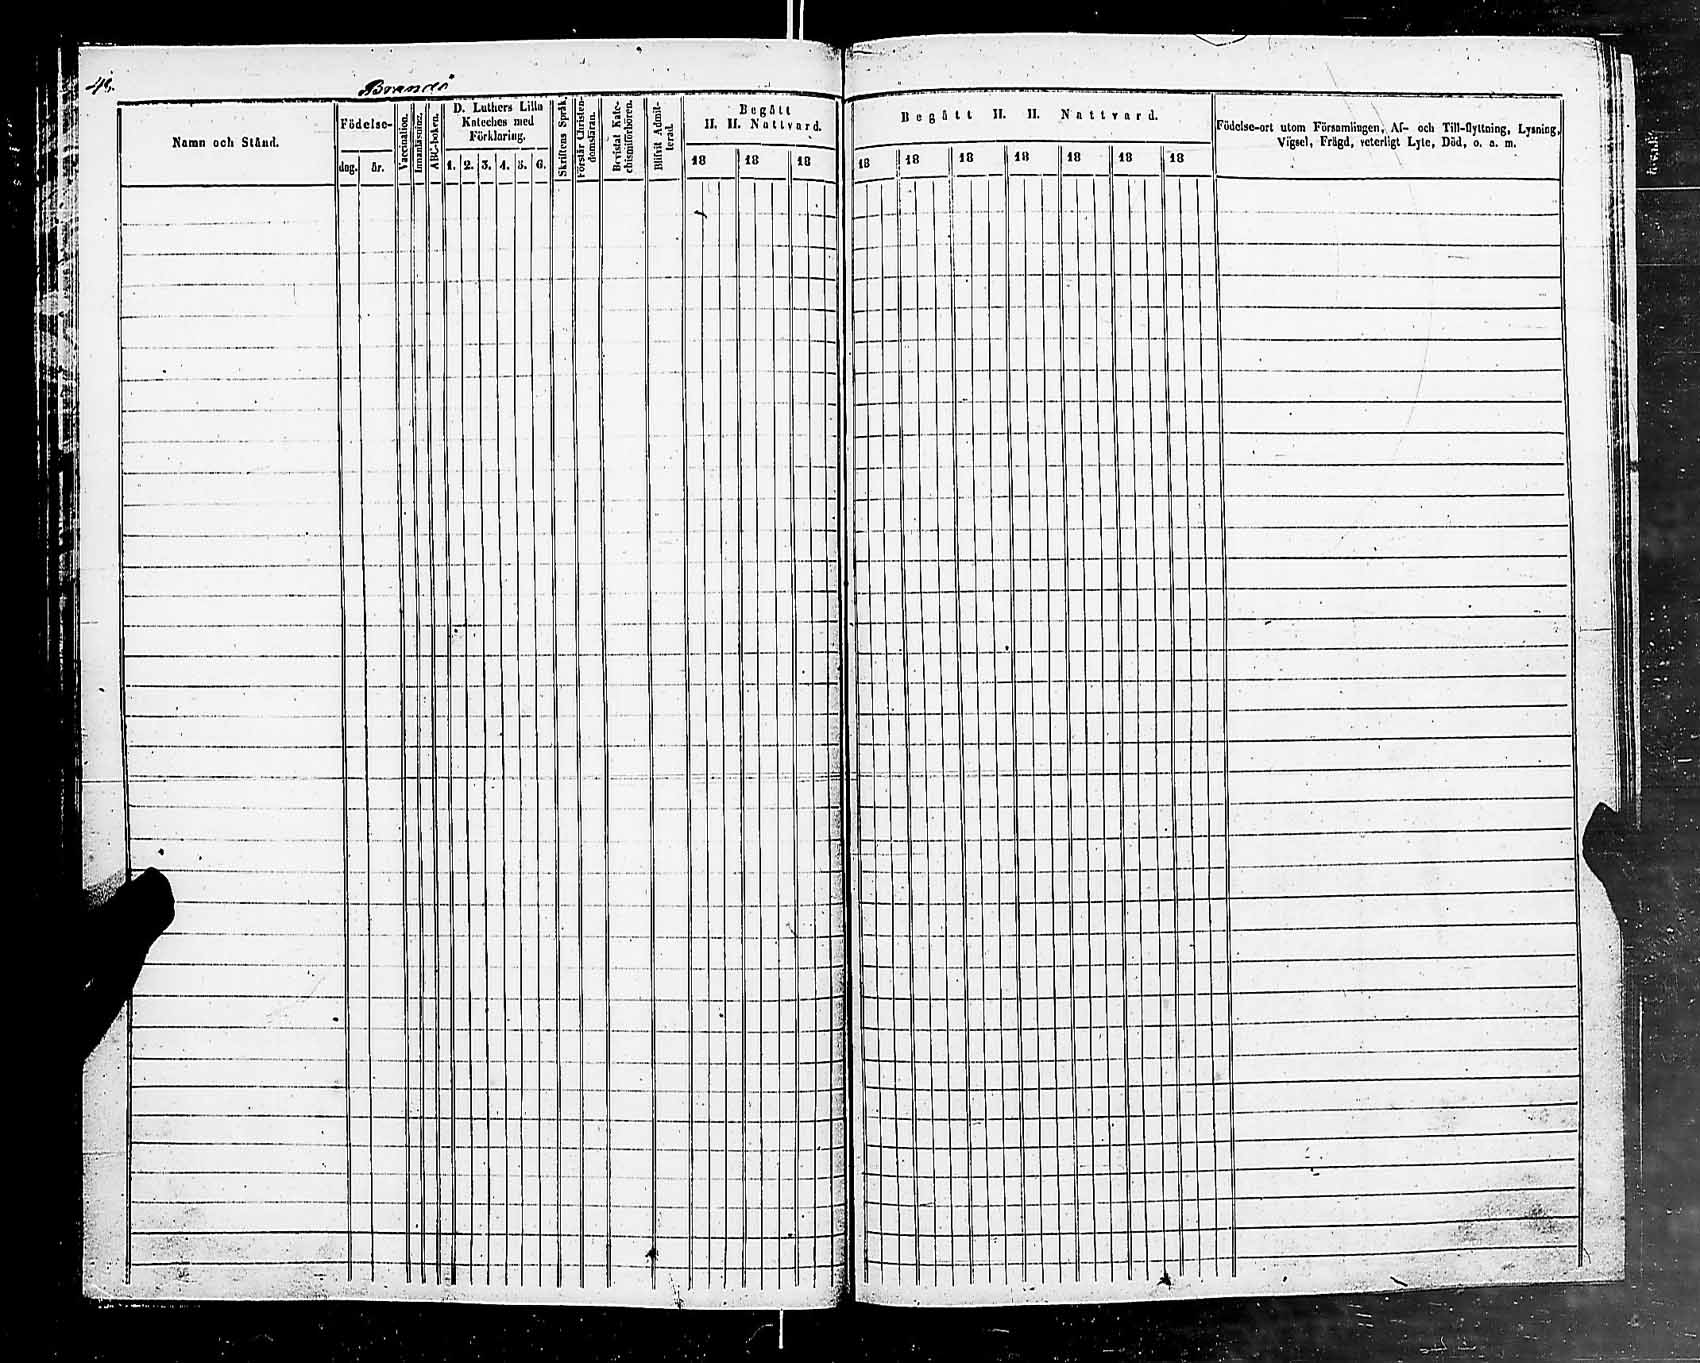 48.
Brandö
Namn och Stånd.
Födelse-
dag.
år.
Vaccination.
Innanläsning.
ABC-boken.
D. Luthers Lilla
Kateches med
Förklaring.
1. 2. 3. 4. 5. 6.
Skriftens Språk.
Förstår Christen-
domsläran.
Bevistat Kate-
chismiförhören.
Blifvit Admit-
terad.
Begått
H. H. Nattvard.
18 18 18
Begått H. H. Nattvard.
18 18 18 18 18 18 18
Födelse-ort utom Församlingen, Af- och Till-flyttning, Lysning,
Vigsel, Frägd, veterligt Lyte, Död, o. a. m.